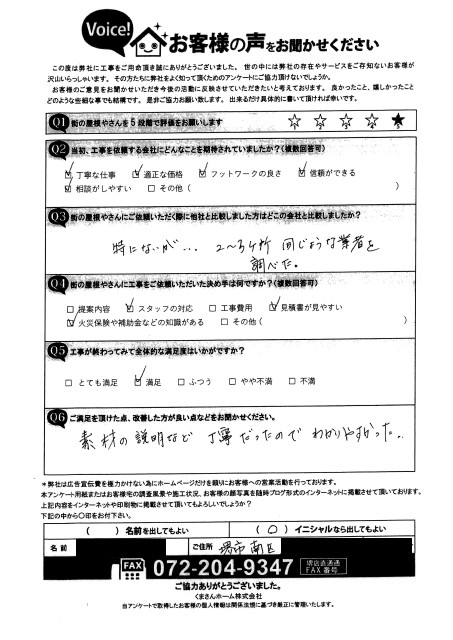 Voice!
お客様の声をお聞かせください
この度は弊社に工事をご用命頂き誠にありがとうございました。世の中には弊社の存在やサービスをご存知ないお客様が
沢山いらっしゃいます。その方たちに弊社をよく知って頂くためのアンケートにご協力頂けないでしょうか。
お客様のご意見をお聞かせいただき今後の活動に反映させていただきたいと考えております。良かったこと、嬉しかったこと
どのような些細な事でも結構です。是非ご協力お願い致します。出来るだけ具体的に書いて頂ければ幸いです。
Q1 街の屋根やさんを5段階で評価をお願いします ☆ ☆ ☆ ☆ ★
Q2 当初、工事を依頼する会社にどんなことを期待されていましたか?(複数回答可)
☑丁寧な仕事 ☑適正な価格 ☑フットワークの良さ ☑信頼ができる
☑相談がしやすい □その他( )
Q3 街の屋根やさんにご依頼いただく際に他社と比較しました方はどこの会社と比較しましたか?
特にないが… 2〜3ケ所 同じような業者を
調べた。
Q4 街の屋根やさんに工事をご依頼いただいた決め手は何ですか?(複数回答可)
□提案内容 ☑スタッフの対応 □工事費用 ☑見積書が見やすい
☑火災保険や補助金などの知識がある □その他( )
Q5 工事が終わってみて全体的な満足度はいかがですか?
□とても満足 ☑満足 □ふつう □やや不満 □不満
Q6 ご満足を頂けた点、改善した方が良い点などをお聞かせください。
素材の説明など 丁寧だったので わかりやすかった..
*弊社は広告宣伝費を極力かけない為にホームページだけを頼りにお客様への営業活動を行っております。
本アンケート用紙またはお客様宅の調査風景や施工状況、お客様の顔写真を随時ブログ形式のインターネットに掲載させて頂いております。
上記内容をインターネットや印刷物に掲載させて頂いてもよろしいでしょうか?
下記の中から〇印をお付下さい。
( ) 名前を出してもよい ( 〇 ) イニシャルなら出してもよい
名前 ご住所 堺市南区
FAX 072-204-9347 堺店直通
FAX番号
ご協力ありがとうございました。
くまさんホーム株式会社
当アンケートで取得したお客様の個人情報は関係法規に基づき厳正に管理いたします。